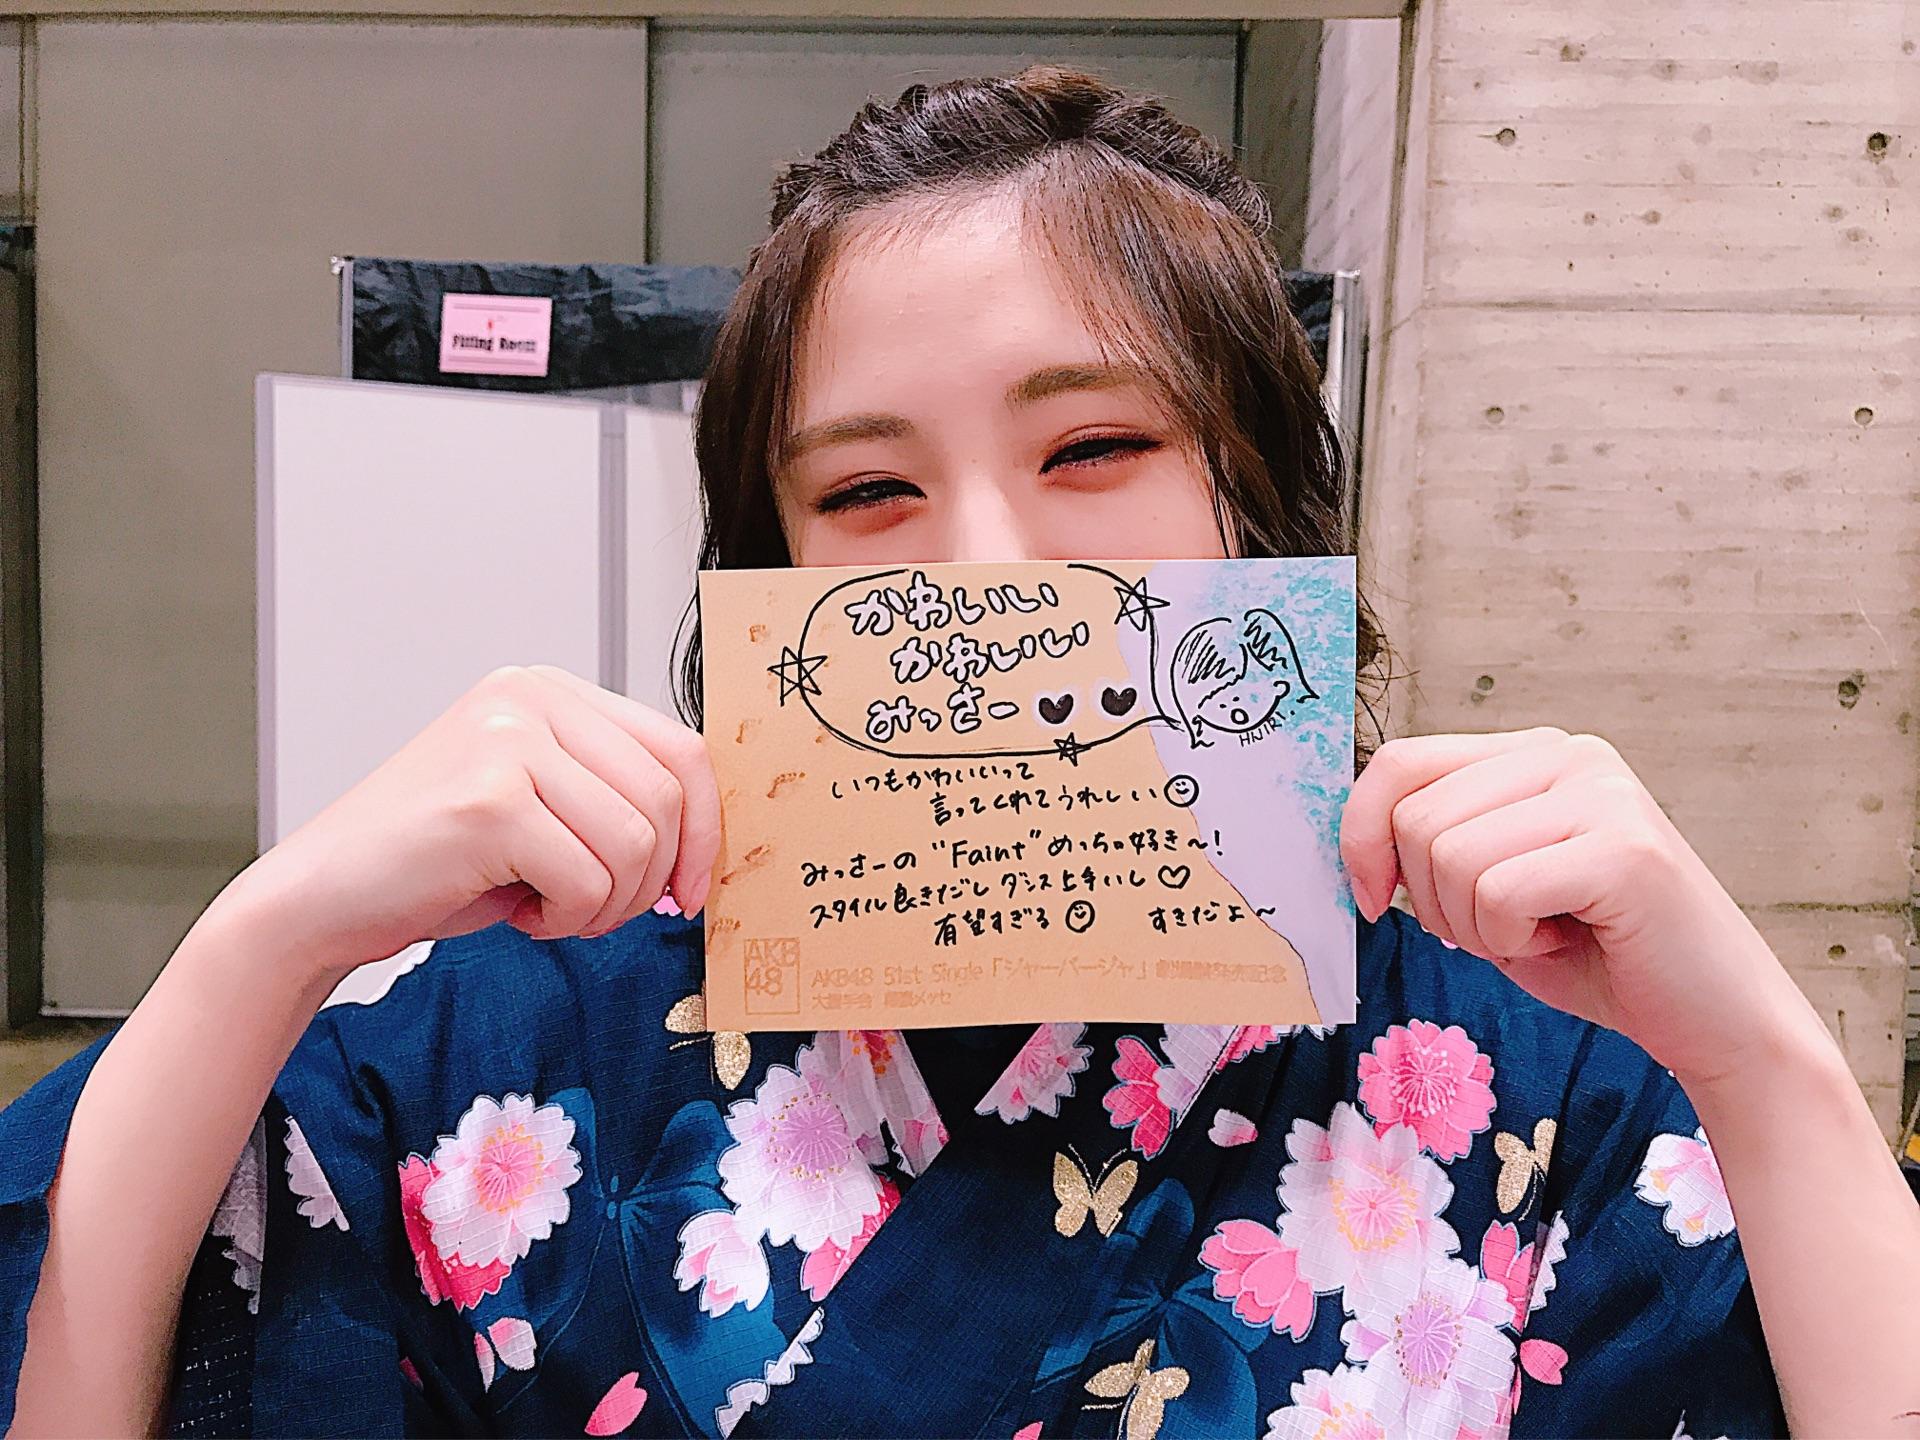 Fitting Room
かわいい
かわいい
みっさー♥♥
HNIRI.
いつもかわいいって
言ってくれてうれしい
みっさーの "Faint" めっちゃ好き〜!
スタイル良きだし ダンス上手いし♡
有望すぎる
すきだよ〜
AKB
48
AKB48 51st Single「ジャーバージャ」劇場盤発売記念
大握手会 幕張メッセ